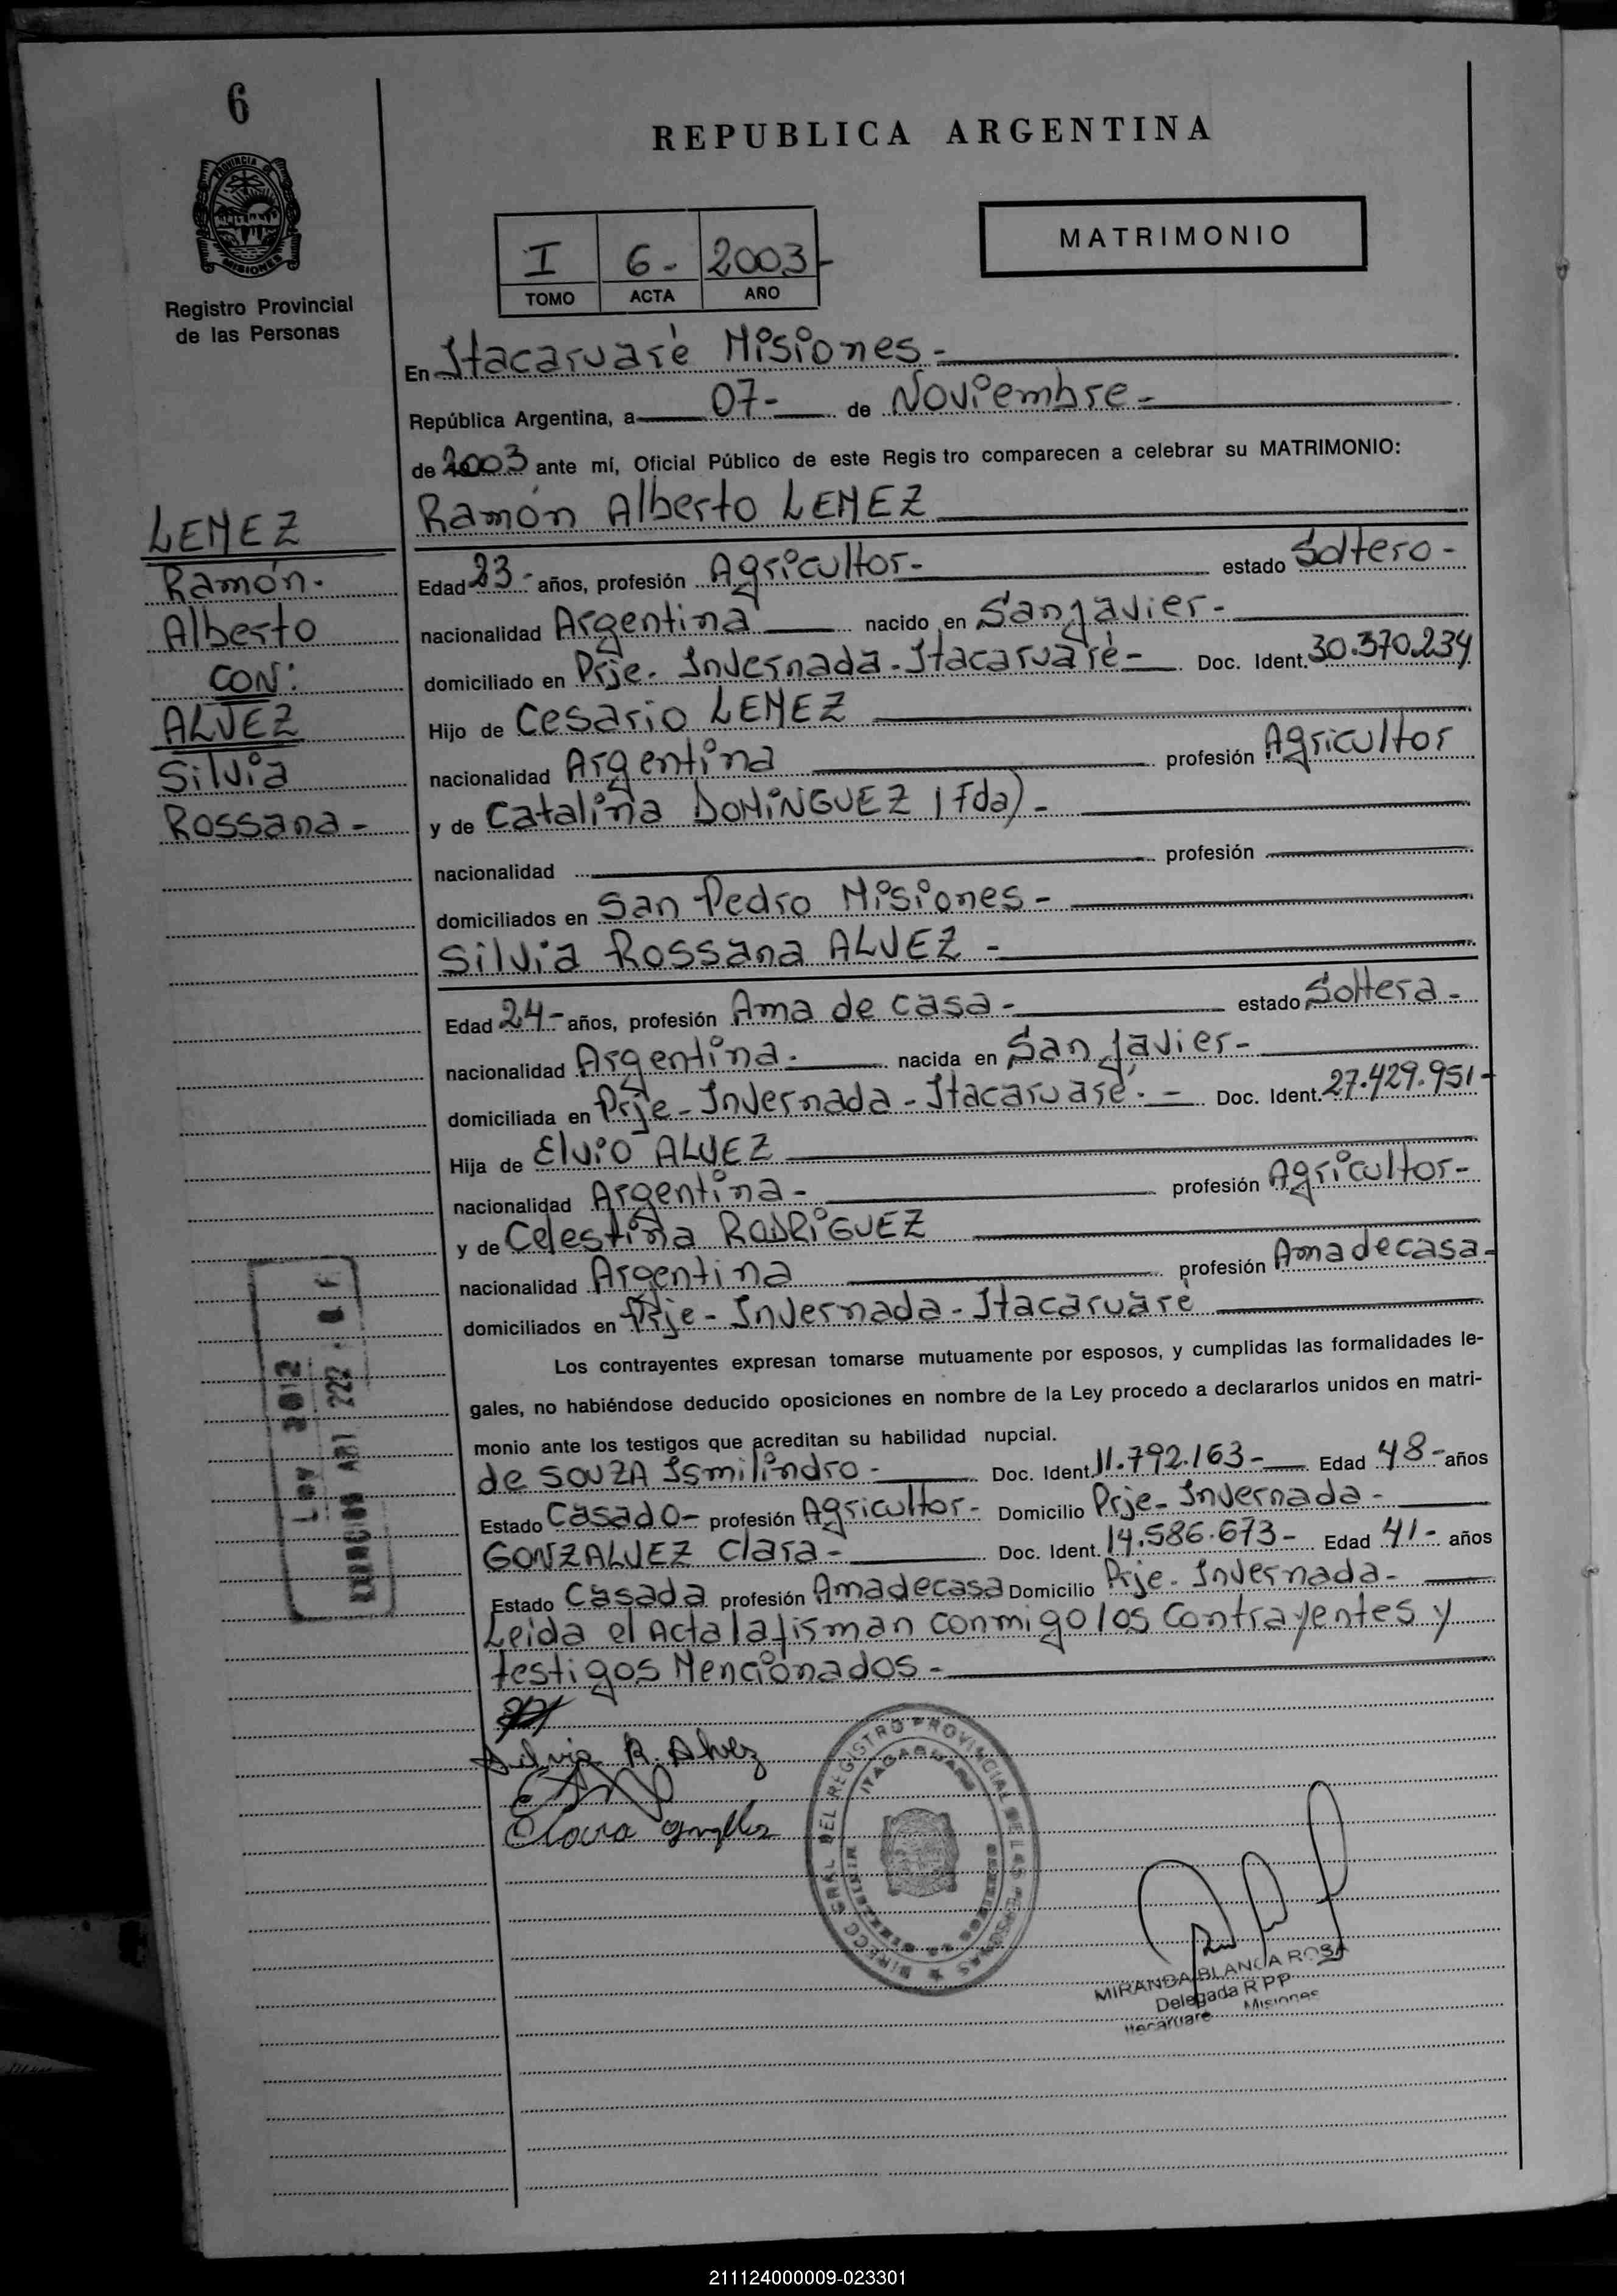 6
PROVINCIA
MISIONES
Registro Provincial
de las Personas
REPUBLICA ARGENTINA
MATRIMONIO
I 6- 2003-
TOMO ACTA AÑO
En Itacaruaré Misiones-
República Argentina, a 07- de Noviembre-
de 2003 ante mí, Oficial Público de este Regis tro comparecen a celebrar su MATRIMONIO:
LEMEZ
Ramón.
Alberto
CON:
ALVEZ
Silvia
Rossana-
Ramón Alberto LEMEZ
Edad 23- años, profesión Agricultor- estado Soltero-
nacionalidad Argentina nacido en San Javier-
domiciliado en Prje. Invernada-Itacaruaré- Doc. Ident. 30.370.234
Hijo de Cesario LEMEZ
nacionalidad Argentina profesión Agricultor
y de Catalina DOMINGUEZ (Fda)-
nacionalidad profesión
domiciliados en San Pedro Misiones-
Silvia Rossana ALVEZ-
Edad 24- años, profesión Ama de casa- estado Soltera-
nacionalidad Argentina- nacida en San Javier-
domiciliada en Prje-Invernada-Itacaruaré.- Doc. Ident. 27.429.951-
Hija de Elvio ALVEZ
nacionalidad Argentina- profesión Agricultor-
y de Celestina RODRIGUEZ
nacionalidad Argentina profesión Ama de casa-
domiciliados en Prje-Invernada-Itacaruaré
Los contrayentes expresan tomarse mutuamente por esposos, y cumplidas las formalidades le-
gales, no habiéndose deducido oposiciones en nombre de la Ley procedo a declararlos unidos en matri-
monio ante los testigos que acreditan su habilidad nupcial.
de SOUZA Ismilindro- Doc. Ident. 11.792.163- Edad 48- años
Estado Casado- profesión Agricultor- Domicilio Prje-Invernada-
GONZALVEZ Clara- Doc. Ident. 14.586.673- Edad 41- años
Estado Casada profesión Ama de casa Domicilio Prje-Invernada-
Leida el Acta la fisman conmigo los Contrayentes y
testigos Mencionados-
Silvia R. Alvez
Clara
REGISTRO PROVINCIAL DE LAS PERSONAS
ITACARUARE
MIRANDA BLANCA ROSA
Delegada R PP
Itacaruare Misiones
Ley 2012
222
211124000009-023301